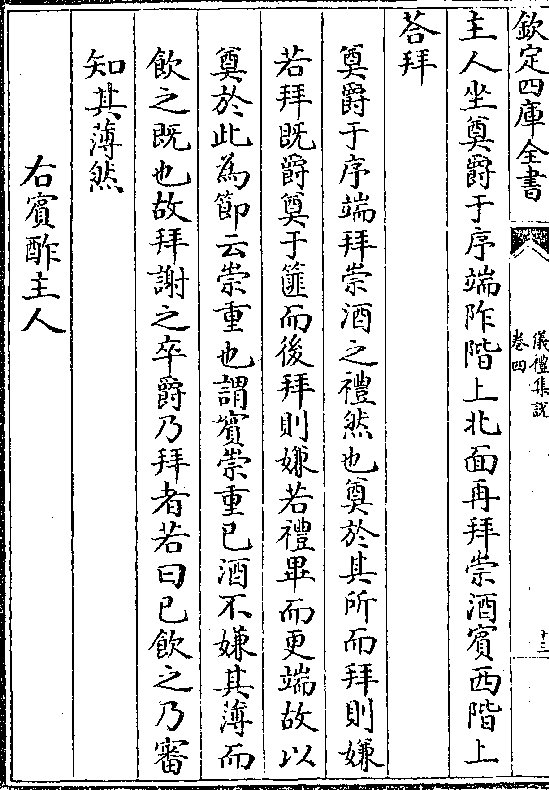 欽定四庫全書
儀禮集說
卷四
十三
主人坐奠爵于序端阼階上北面再拜崇酒賓西階上
荅拜
奠爵于序端拜崇酒之禮然也奠於其所而拜則嫌
若拜既爵奠于篚而後拜則嫌若禮畢而更端故以
奠於此為節云崇重也謂賓崇重已酒不嫌其薄而
飲之既也故拜謝之卒爵乃拜者若曰已飲之乃審
知其薄然
右賓酢主人